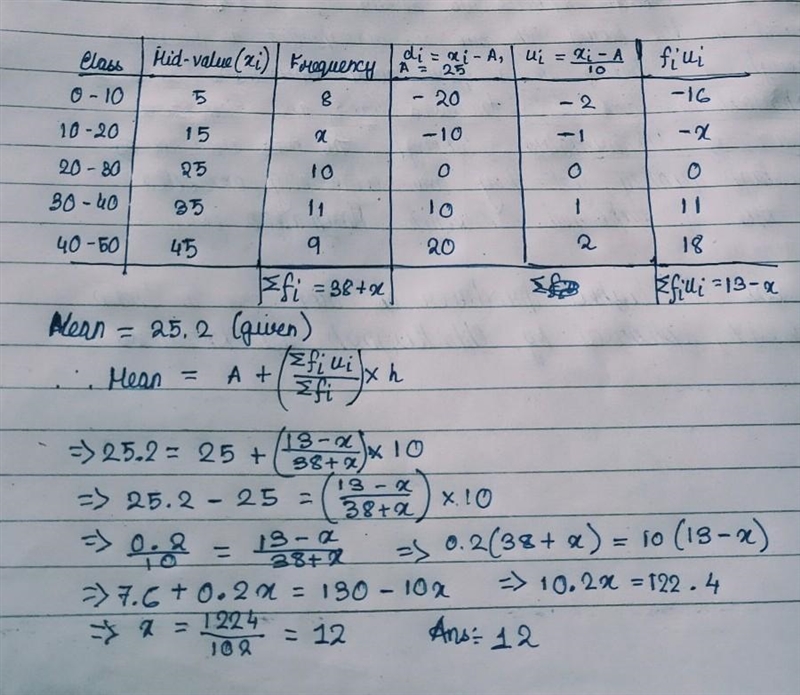 Class | Mid-value (xi) | Frequency | di = xi - A, A = 25 | ui = xi - A / 10 | fi ui
0-10 | 5 | 8 | -20 | -2 | -16
10-20 | 15 | x | -10 | -1 | -x
20-30 | 25 | 10 | 0 | 0 | 0
30-40 | 35 | 11 | 10 | 1 | 11
40-50 | 45 | 9 | 20 | 2 | 18
Σfi = 38+x | Σfiui = 13-x
Mean = 25.2 (given)
∴ Mean = A + (Σfiui / Σfi) × h
=> 25.2 = 25 + (13-x / 38+x) × 10
=> 25.2 - 25 = (13-x / 38+x) × 10
=> 0.2 / 10 = 13-x / 38+x => 0.2(38+x) = 10(13-x)
=> 7.6 + 0.2x = 130 - 10x => 10.2x = 122.4
=> x = 1224 / 102 = 12 Ans:- 12